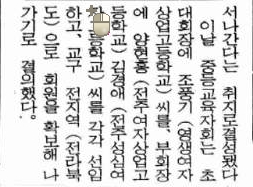 서나간다는 취지로결성됐다
이날 중등교육자회는 초
대회장에 조풍기(영생여자
상업고등학교)씨를, 부회장
에 양현홍(전주여자상업고
등학교) 김경애(전주성심여
등학교)씨를 각각 선임
하고, 교구 전지역(전라북
도)으로 회원을 확보해 나
가기로 결의했다.